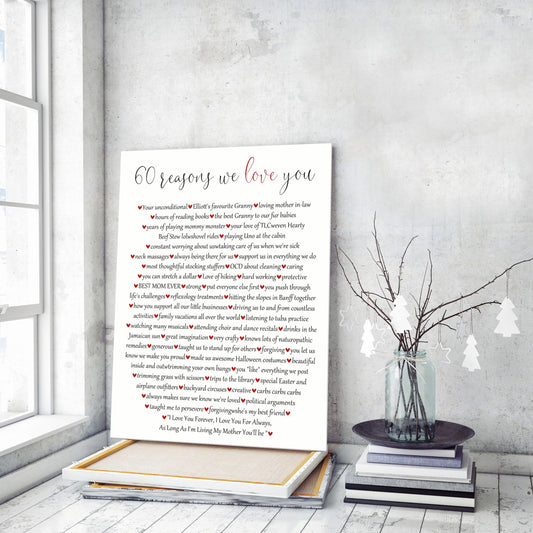 60 reasons we love you
♥Your unconditional♥Elliott's favourite Granny♥loving mother in-law
♥hours of reading books♥the best Granny to our fur babies
♥years of playing mommy monster♥your love of TLCweven Hearty
Beef Stew lobshovel rides♥playing Uno at the cabin
♥constant worrying about uswtaking care of us when we're sick
♥neck massages♥always being there for us♥support us in everything we do
♥most thoughtful stocking stuffers♥OCD about cleaning♥caring
♥you can stretch a dollar♥Love of hiking♥hard working♥protective
♥BEST MOM EVER♥strong♥put everyone else first♥you push through
life's challenges♥reflexology treatments♥hitting the slopes in Banff together
♥how you support all our little businesses♥driving us to and from countless
activities♥family vacations all over the world♥listening to tuba practice
♥watching many musicals♥attending choir and dance recitals♥drinks in the
Jamaican sun♥great imagination♥very crafty♥knows lots of naturopathic
remedies♥generous♥taught us to stand up for others♥forgiving♥you let us
know we make you proud♥made us awesome Halloween costumes♥beautiful
inside and outwtrimming your own bangs♥you "like" everything we post
♥trimming grass with scissors♥trips to the library♥special Easter and
airplane outfitters♥backyard circuses♥creative♥carbs carbs carbs
♥always makes sure we know we're loved♥political arguments
♥taught me to persevere♥forgivingwhe's my best friend♥
♥"I Love You Forever, I Love You For Always,
As Long As I'm Living My Mother You'll be "♥